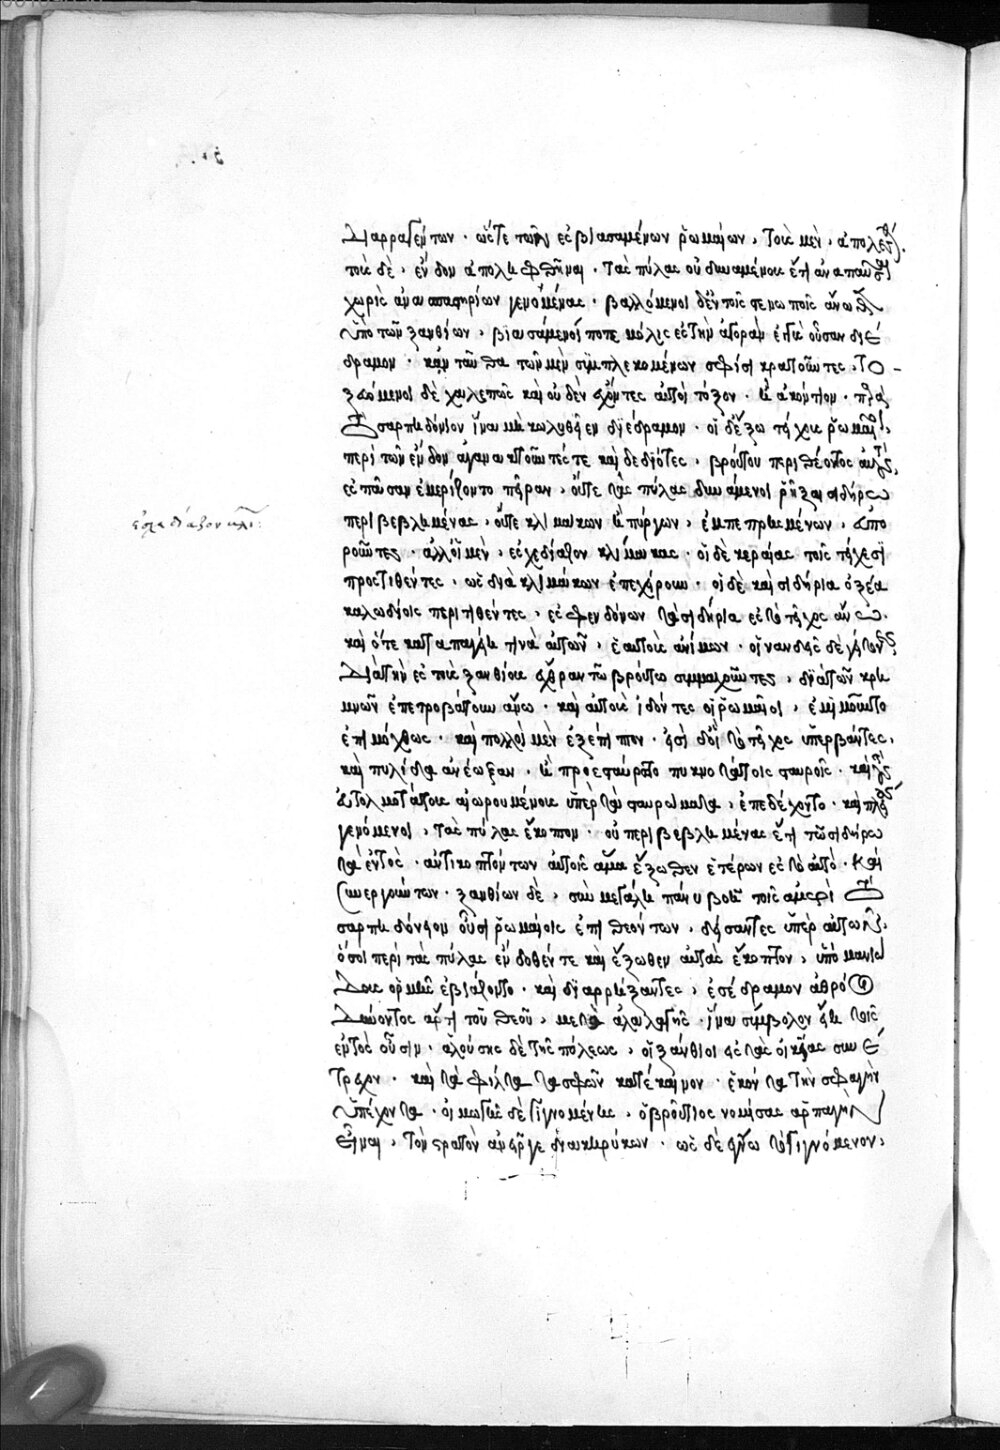 διαρραγέντων· ὥστε τῶν ἐσβιασαμένων ῥωμαίων, τοὺς μὲν, ἀπολέσθαι.
τοὺς δὲ, ἔνδον ἀποληφθῆναι. τὰς πύλας οὐ δυναμένους ἔτι ἀναπαῦσαι
χωρὶς ἀνασπαστηρίων γενομένας· βαλλόμενοι δ' ἐν τοῖς στενωποῖς ἄνωθεν
ὑπὸ τῶν ξανθίων, βιασάμενοί ποτε μόλις ἐς τὴν ἀγορὰν ἐγγὺς οὖσαν διέ
δραμον· κἀνταῦθα τῶν μὲν συμπλεκομένων σφίσι κρατοῦντες, το-
ξευόμενοι δὲ χαλεπῶς καὶ οὐδὲν ἔχοντες αὐτοὶ τόξον· ἢ ἀκόντιον· παρὰ
τὸ σαρπηδόνιον ἵνα μὴ κυκλωθεῖεν διέδραμον· οἱ δ' ἔξω τείχους ῥωμαῖοι,
περὶ τῶν ἔνδον ἀγανακτοῦντές τε καὶ δεδιότες, βρούτου περιθέοντος αὐτούς,
ἐς πᾶσαν ἐμερίζοντο πεῖραν, οὔτε τὰς πύλας δυνάμενοι ῥῆξαι σιδήρω
περιβεβλημένας, οὔτε κλιμάκων ἢ πύργων, ἐμπεπρησμένων, εὐπο
ροῦντες· ἀλλ' οἱ μὲν, ἐσχεδίαζον κλίμακας· οἱ δὲ κεραίας τοῖς τείχεσι
προστιθέντες, ὡς διὰ κλιμάκων ἐπεχείρουν· οἱ δὲ καὶ σιδήρια ὀξέα
καλωδίοις περιτιθέντες, ἐσφενδόνων τὰ σιδήρια ἐς τὸ τεῖχος ἄνω.
καὶ ὅτε καταπαγείη τινὰ αὐτῶν, ἑαυτοὺς ἀνίμων· οἰνανδεῖς δὲ γείτονες
διὰ τὴν ἐς τοὺς ξανθίους ἔχθραν τῶ βρούτω συμμαχοῦντες, δι' αὐτῶν κρη
μνῶν ἐπετροβάτουν ἄνω· καὶ αὐτοὺς ἰδόντες οἱ ῥωμαῖοι, ἐμιμοῦντο
ἐπιμόχθως· καὶ πολλοὶ μὲν ἐξέπιπτον· εἰσὶ δ' οἳ τὸ τεῖχος ὑπερβάντες,
καὶ πυλίδα ἀνέωξαν· ἣ προεσταύρωτο πυκνοτάτοις σταυροῖς· καὶ τοὺς
εὐτολμοτάτους αἰωρουμένους ὑπὲρ τὰ σταυρώματα, ἐπεδέχοντο· καὶ πλέους
γενόμενοι, τὰς πύλας ἔκοπτον· οὐ περιβεβλημένας ἔτι τῶ σιδήρω
τὰ ἐντὸς· ἀντικοπτόντων αὐτοῖς ἅμα ἔξωθεν ἑτέρων ἐς τὸ αὐτό· καὶ
συνεργούντων· ξανθίων δὲ, σὺν μεγάλη πάνυ βοῆ τοῖς ἀμφὶ τὸ
σαρπηδόνιον οὖσι ῥωμαίοις ἐπιθεόντων, δείσαντες ὑπὲρ αὐτῶν,
ὅσοι περὶ τὰς πύλας ἔνδοθέν τε καὶ ἔξωθεν αὐτὰς ἔκοπτον, ὑπὸ μανιώ
δους ὁρμῆς ἐβιάζοντο· καὶ διαρρήξαντες, ἐσέδραμον ἀθρόοι
δύνοντος ἄρτι τοῦ θεοῦ, μετὰ ἀλαλαγῆς· ἵνα σύμβολον εἴη τοῖς
ἐντὸς οὖσιν· ἁλούσης δὲ τῆς πόλεως, οἱ ξάνθιοι ἐς τὰς οἰκίας συνέ
τρεχον· καὶ τὰ φίλτατα σφῶν κατέκαινον· ἑκόντα τὴν σφαγὴν
ὑπέχοντα· οἰμωγῆς δὲ γιγνομένης, ὁ βροῦτος νομίσας ἁρπαγὴν
εἶναι, τὸν στρατὸν ἀνεῖργε διὰ κηρύκων· ὡς δὲ ἔγνω τὸ γιγνόμενον,
ἐσχεδίαζον κλί: